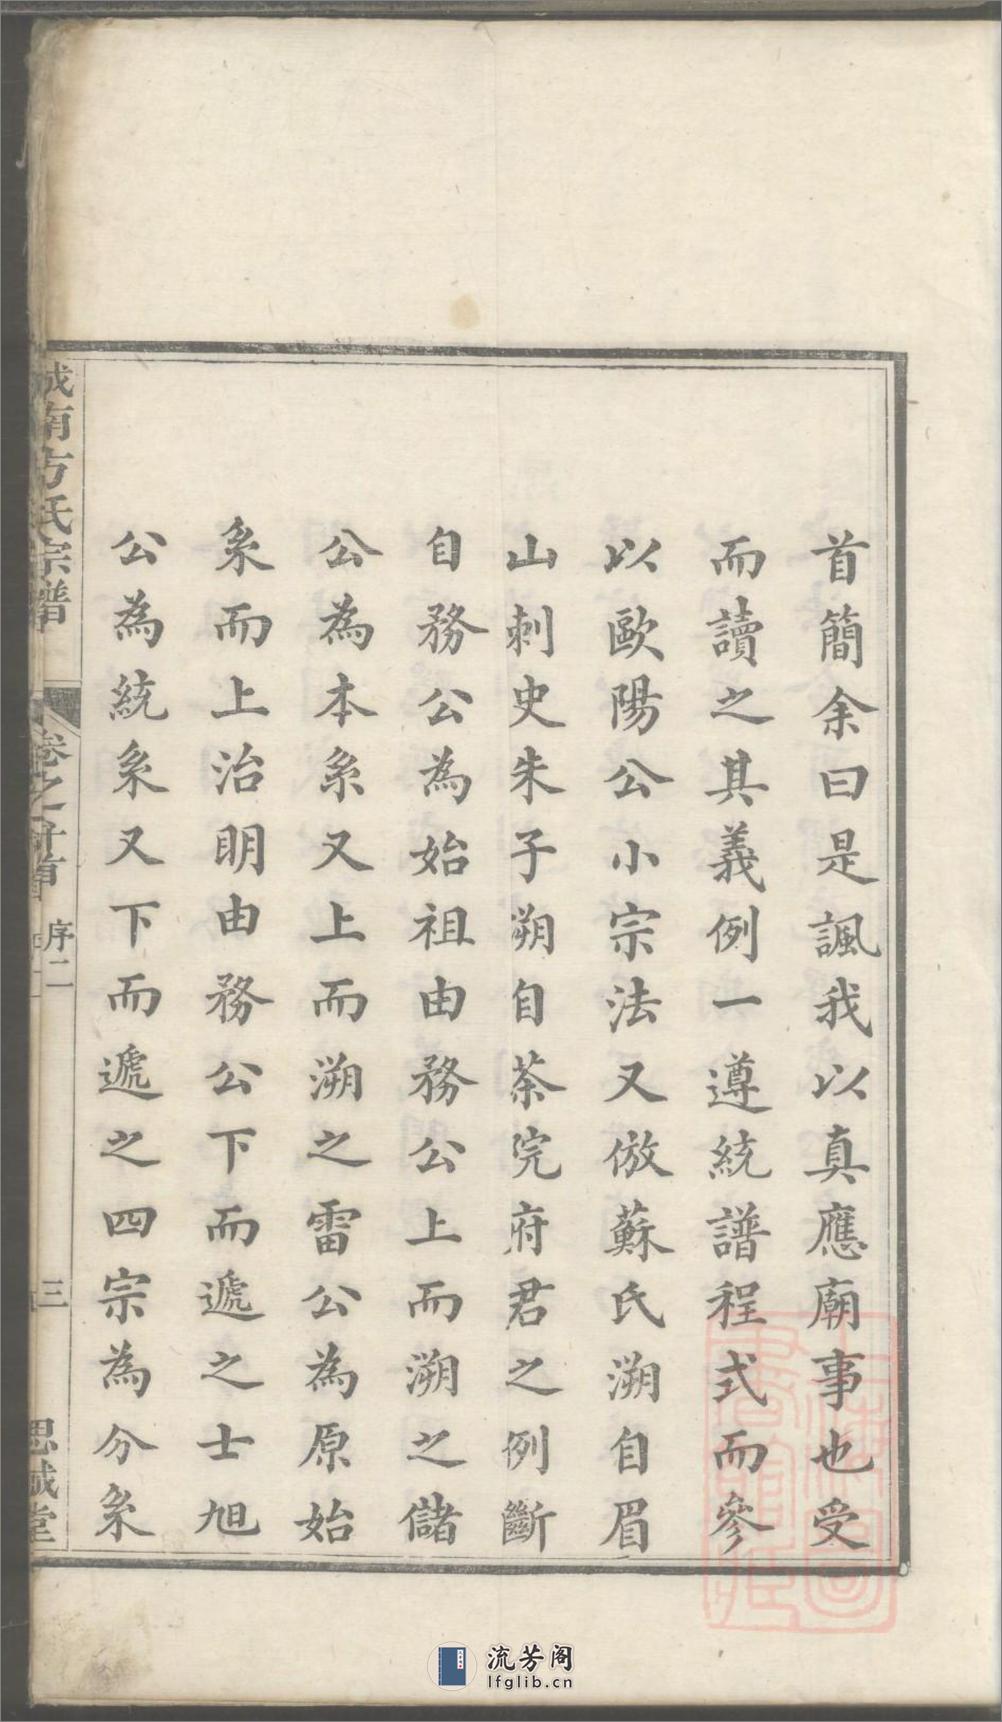 首簡余曰是諷我以真應廟事也受
而讀之其義例一遵統譜程式而參
以歐陽公小宗法又倣蘇氏溯自眉
山刺史朱子朔自茶完府君之例斷
自務公為始祖由務公上而溯之儲
公為本系又上而溯之雷公為原始
系而上治明由務公下而遞之士旭
公為統系又下而遞之四宗為分系
城南方氏宗譜
卷之首
序二
三
思誠堂
流芳阁
lfglib.cn